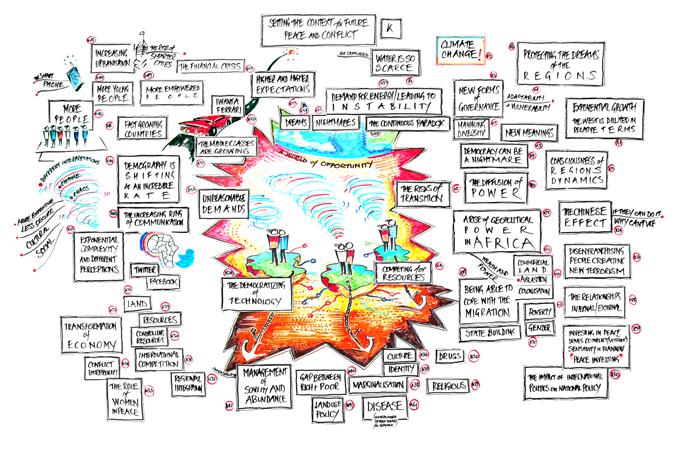 SETTING THE CONTEXT for FUTURE
PEACE AND CONFLICT
K
INCREASING
URBANISATION
THE RISE OF
SMARTER
CITIES
THE FINANCIAL CRISIS
THE SMART
PHONE
MORE YOUNG
PEOPLE
MORE EMPOWERED
PEOPLE
HIGHER AND HIGHER
EXPECTATIONS
WATER IS SO
SCARCE
CLIMATE
CHANGE!
PROTECTING THE DREAMS
of the
REGIONS
MORE
PEOPLE
FAST GROWING
COUNTRIES
I WANT A
FERRARI
THE MIDDLE CLASSES
ARE GROWING
DEMAND FOR ENERGY LEADING TO
INSTABILITY
DREAMS
NIGHTMARES
THE CONTINUOUS PARADOX
NEW FORMS
of
GOVERNANCE
ADAPTABILITY
VULNERABILITY
MANAGING
DIVERSITY
NEW MEANINGS
EXPONENTIAL GROWTH
THE WEST IS DILUTED IN
RELATIVE TERMS
DIFFERENT INTERPRETATIONS
FUTURE
CHAOS
MORE EXPECTATION
LESS FUTURE
CULTURAL
SOCIAL
DEMOGRAPHY IS
SHIFTING
AT AN INCREDIBLE
RATE
A WORLD OF OPPORTUNITY
DEMOCRACY CAN BE
A NIGHTMARE
CONSCIOUSNESS of
REGIONS
DYNAMICS
UNREASONABLE
DEMANDS
THE RISKS OF
TRANSITION
THE DIFFUSION of
POWER
THE INCREASING RING
OF COMMUNICATION
EXPONENTIAL
COMPLEXITY
AND DIFFERENT
PERCEPTIONS
TWITTER
FACEBOOK
A RISE OF GEOPOLITICAL
POWER
IN AFRICA
THE CHINESE
EFFECT
IF THEY CAN DO IT
WHY CAN'T WE
WEALTH AND
POWER
COMMERCIAL
LAND
COLONISATION
DISENFRANCHISING
PEOPLE CREATING
NEW TERRORISM
THE DEMOCRATIZING
of
TECHNOLOGY
COMPETING for
RESOURCES
BEING ABLE TO
COPE WITH THE
MIGRATION
THE RELATIONSHIPS
INTERNAL/EXTERNAL
LAND
RESOURCES
TRANSFORMATION
of
ECONOMY
CONTROLLING
RESOURCES
POVERTY
STATE BUILDING
GENDER
CONFLICT
ENTREPRENEURS
INTERNATIONAL
COMPETITION
INVESTING IN PEACE
"PEACE INVESTING"
THE ROLE
of
WOMEN
IN PEACE
REGIONAL
INTEGRATION
MANAGEMENT
OF SCARCITY AND
ABUNDANCE
GAP BETWEEN
RICH POOR
CULTURE
IDENTITY
DRUGS
MARGINALISATION
RELIGIOUS
THE IMPACT OF INTERNATIONAL
POLITICS ON NATIONAL POLICY
LAND USE
POLICY
DISEASE